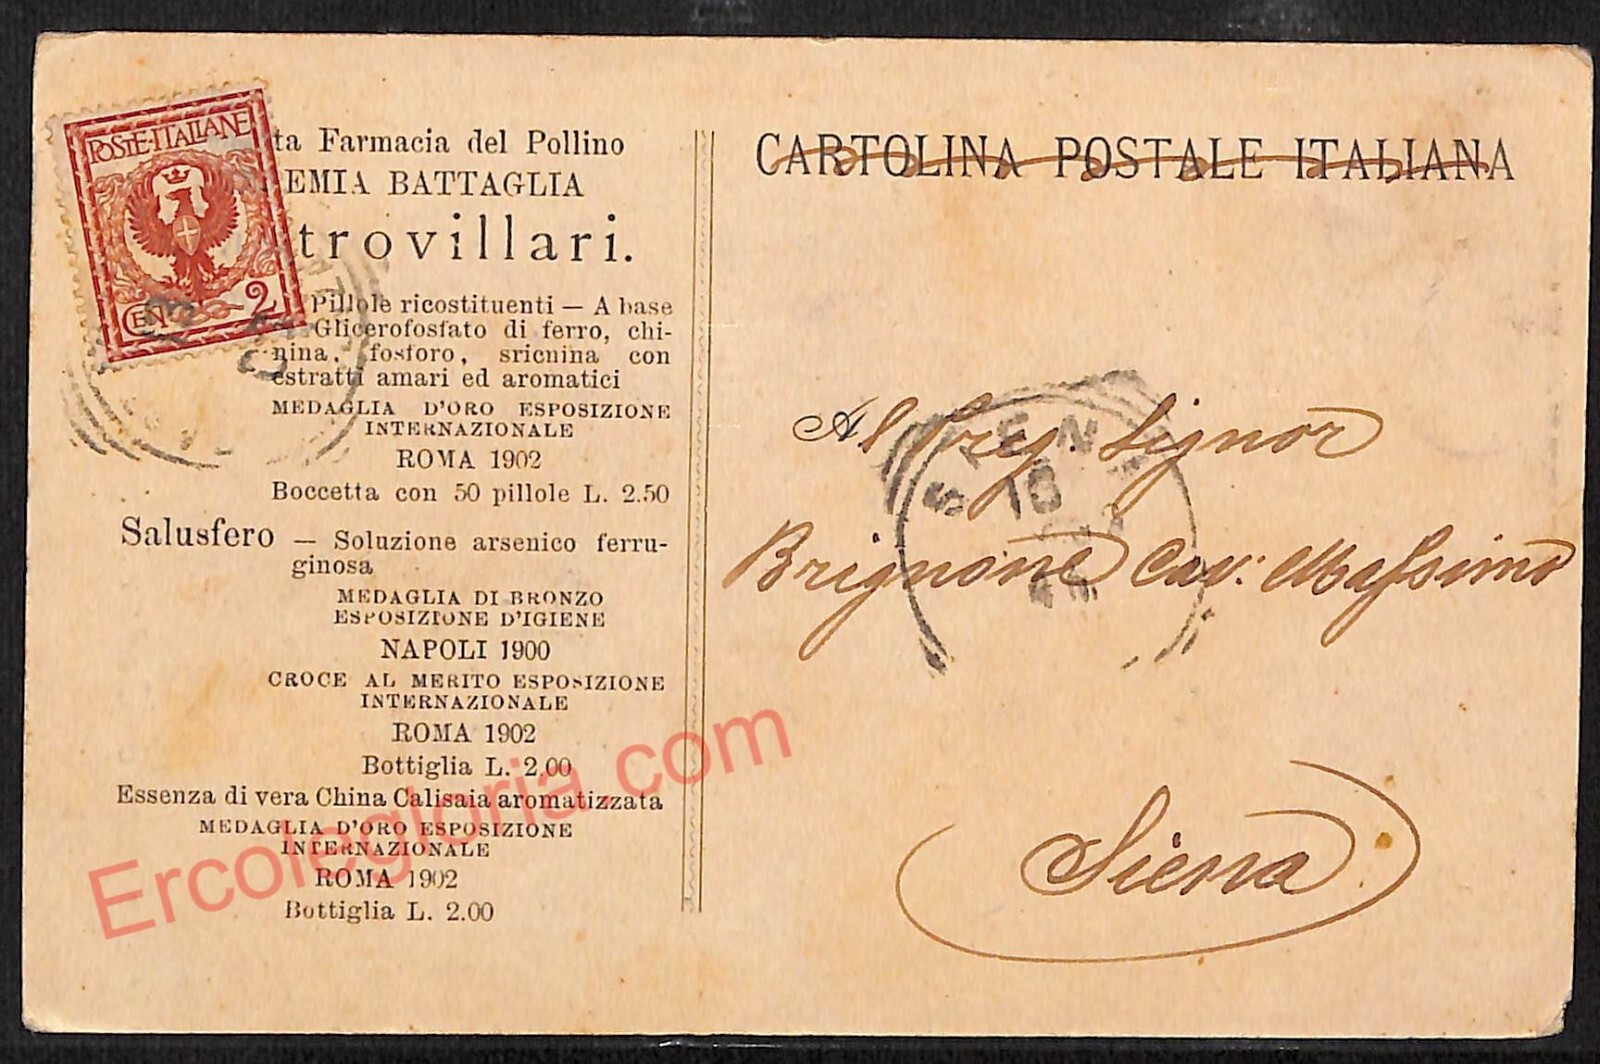 POSTE·ITALIANE
CEN 2
ta Farmacia del Pollino
EMIA BATTAGLIA
trovillari.
Pillole ricostituenti — A base
Glicerofosfato di ferro, chi-
nina, fosforo, sricnina con
estratti amari ed aromatici
MEDAGLIA D'ORO ESPOSIZIONE
INTERNAZIONALE
ROMA 1902
Boccetta con 50 pillole L. 2.50
Salusfero — Soluzione arsenico ferru-
ginosa
MEDAGLIA DI BRONZO
ESPOSIZIONE D'IGIENE
NAPOLI 1900
CROCE AL MERITO ESPOSIZIONE
INTERNAZIONALE
ROMA 1902
Bottiglia L. 2.00
Essenza di vera China Calisaia aromatizzata
MEDAGLIA D'ORO ESPOSIZIONE
INTERNAZIONALE
ROMA 1902
Bottiglia L. 2.00
CARTOLINA POSTALE ITALIANA
Al Preg. Signor
Brignone Cav: Massimo
Siena
SIENA
10
Ercolegloria.com